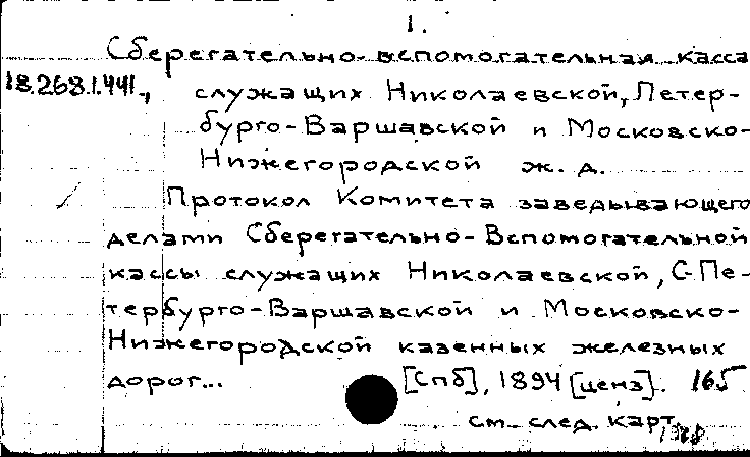 1.
Сберегательно-вспомогательная касса
18.268.1.441.,
служащих Николаевской, Петер-
бурго-Варшавской и Московско-
Нижегородской ж. д.
Протокол Комитета заведывающего
делами Сберегательно-Вспомогательной
кассы служащих Николаевской, С-Пе-
тербурго-Варшавской и Московско-
Нижегородской казенных железных
дорог... [Спб], 1894 [ценз]. 165
см. след. карт